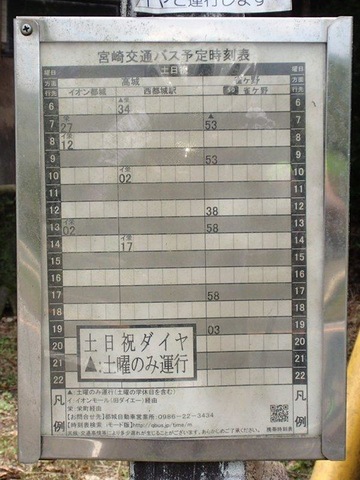 イヤで運行します
宮崎交通バス予定時刻表
曜日 土日祝 曜日
方面 高城 雀ケ野 方面
行先 イオン都城 西都城駅 50 雀ケ野 行先
▲栄
6 34 6
栄 ▲
7 27 53 7
イ栄
8 12 8
9 53 9
イ栄
10 02 10
11 11
12 38 12
イ栄
13 02 58 13
イ栄
14 17 14
15 15
16 16
17 58 17
18 18
19 03 19
20 20
21 21
22 22
土日祝ダイヤ
▲:土曜のみ運行
凡例
▲:土曜のみ運行(土曜の学休日を含む)
イ:イオンモール(旧ダイエー)経由
栄:栄町経由
【お問合せ先】都城自動車営業所:0986-22-3434
【時刻表検索 (モード版)】http://qbus.jp/time/m
凡例
携帯時刻表